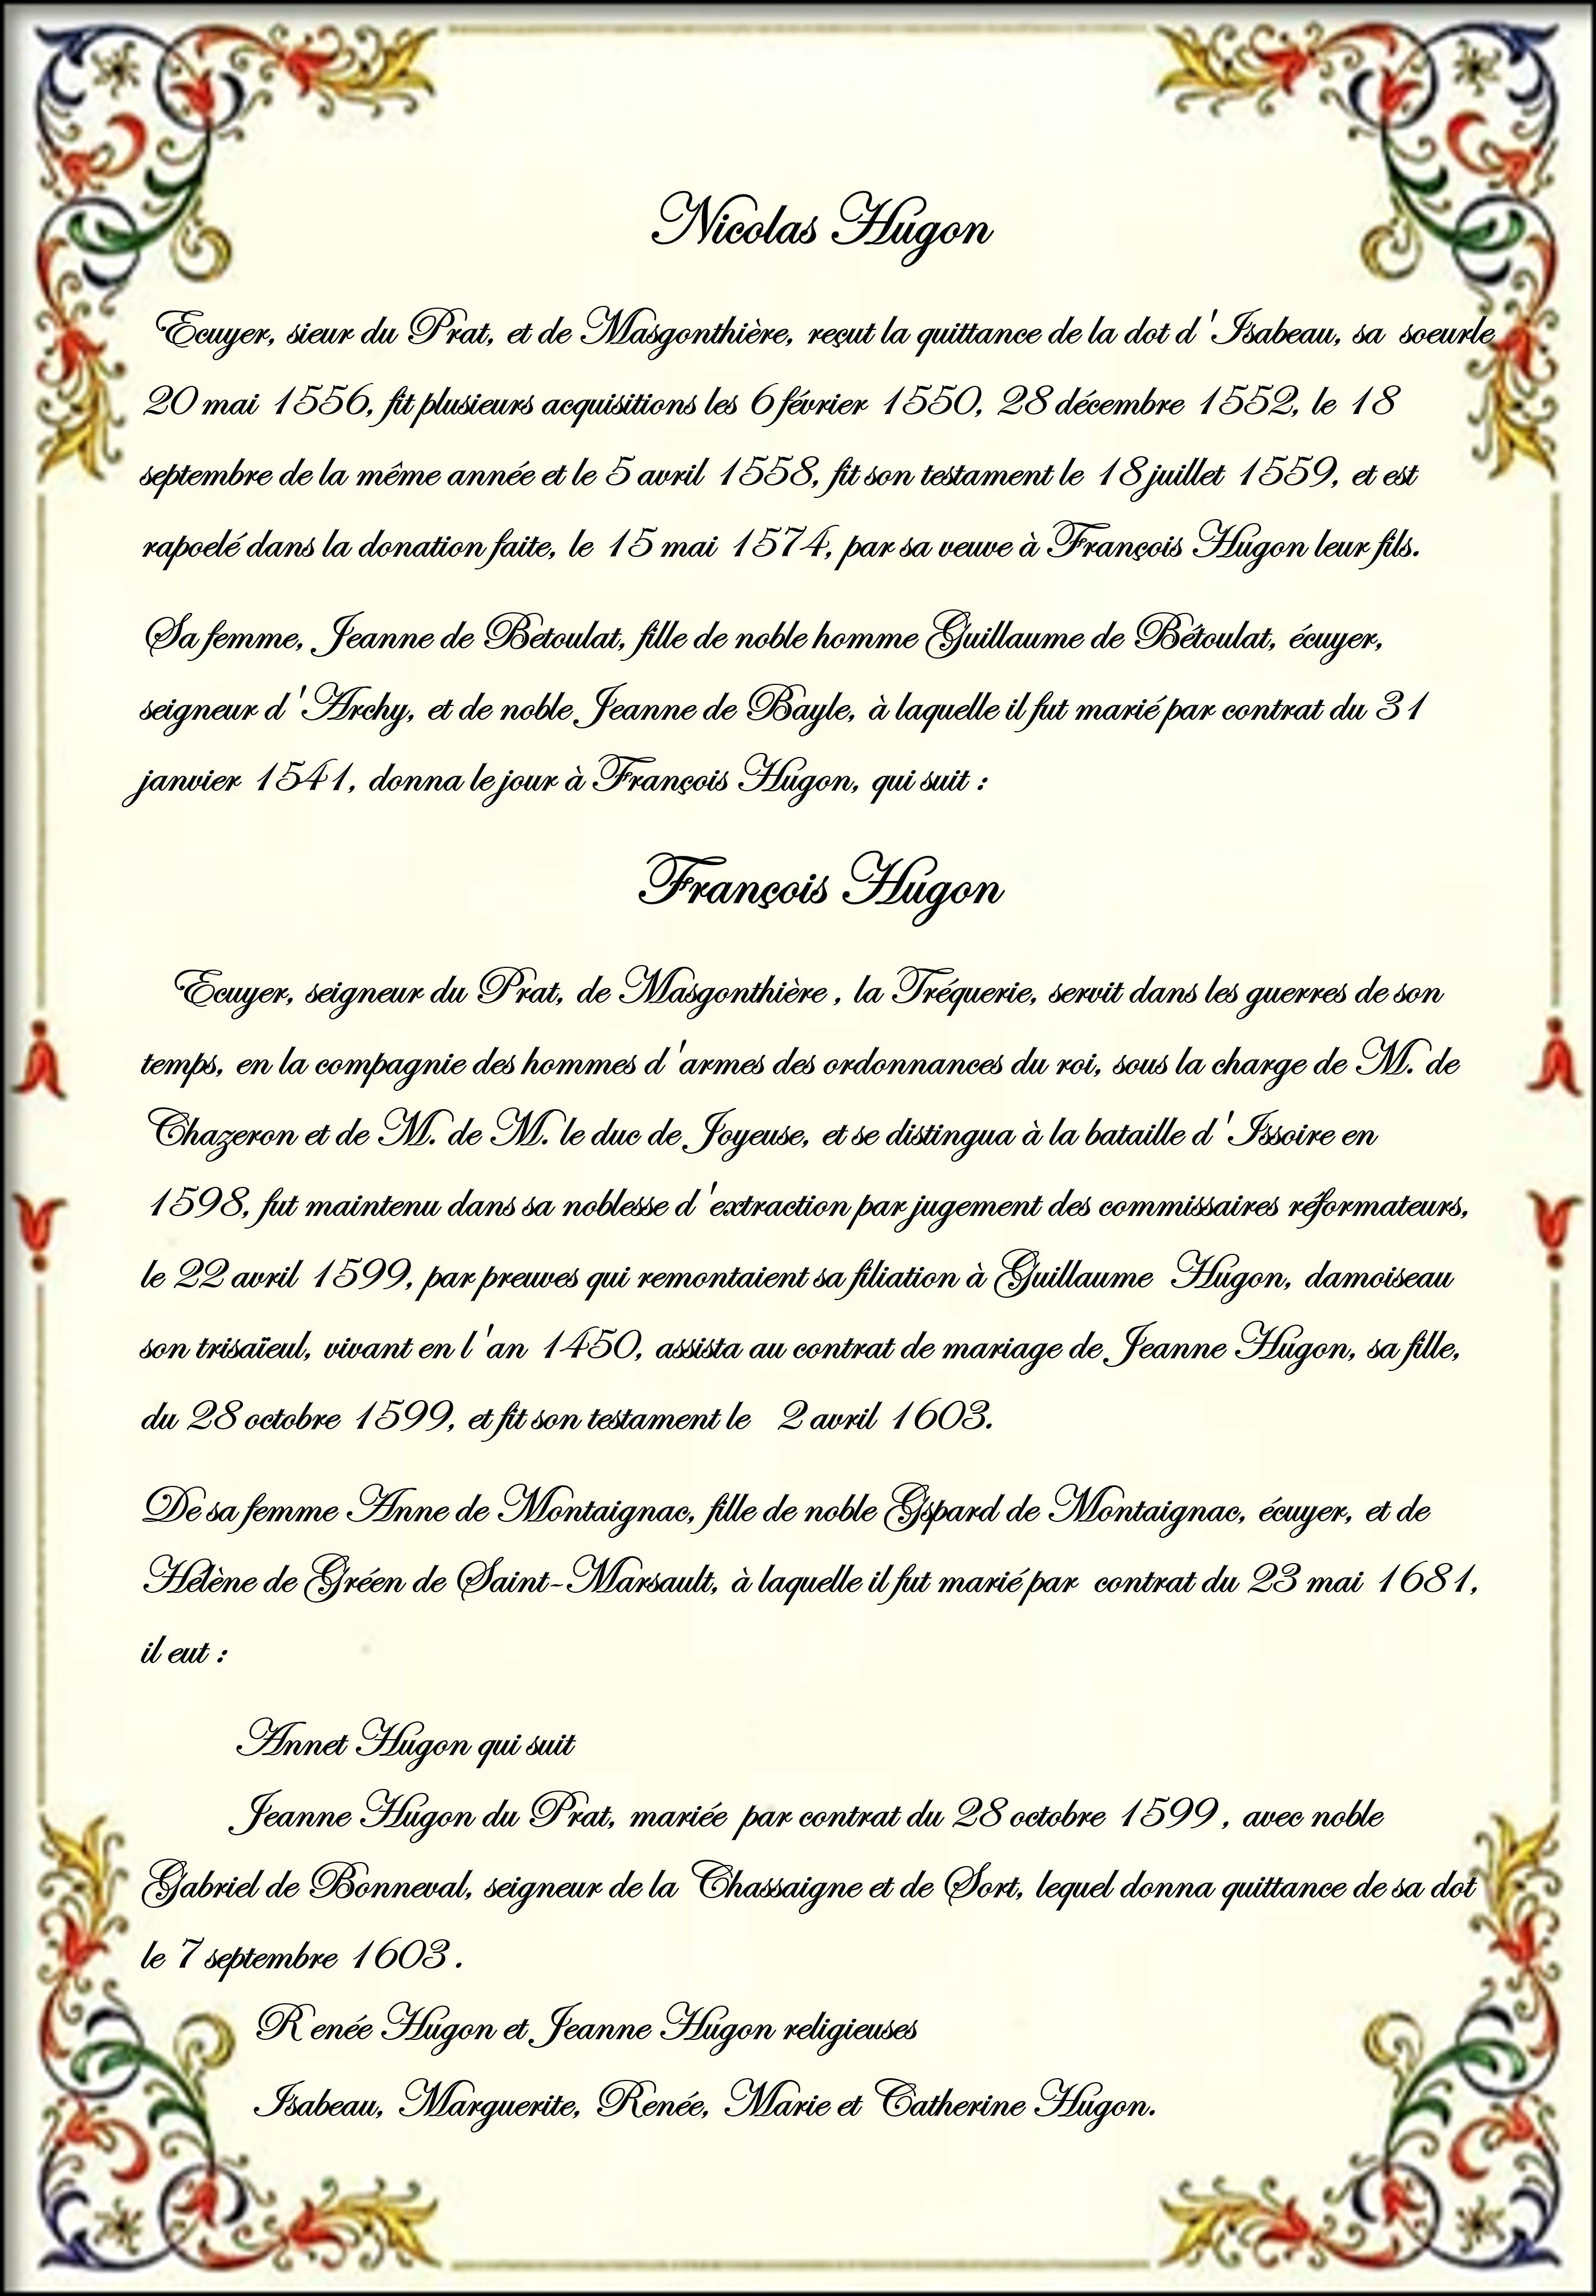 Nicolas Hugon
Ecuyer, sieur du Prat, et de Masgonthière, reçut la quittance de la dot d'Isabeau, sa soeurle
20 mai 1556, fit plusieurs acquisitions les 6 février 1550, 28 décembre 1552, le 18
septembre de la même année et le 5 avril 1558, fit son testament le 18 juillet 1559, et est
rapoelé dans la donation faite, le 15 mai 1574, par sa veuve à François Hugon leur fils.
Sa femme, Jeanne de Betoulat, fille de noble homme Guillaume de Bétoulat, écuyer,
seigneur d'Archy, et de noble Jeanne de Bayle, à laquelle il fut marié par contrat du 31
janvier 1541, donna le jour à François Hugon, qui suit :
François Hugon
Ecuyer, seigneur du Prat, de Masgonthière , la Tréquerie, servit dans les guerres de son
temps, en la compagnie des hommes d'armes des ordonnances du roi, sous la charge de M. de
Chazeron et de M. de M. le duc de Joyeuse, et se distingua à la bataille d'Issoire en
1598, fut maintenu dans sa noblesse d'extraction par jugement des commissaires réformateurs,
le 22 avril 1599, par preuves qui remontaient sa filiation à Guillaume Hugon, damoiseau
son trisaïeul, vivant en l'an 1450, assista au contrat de mariage de Jeanne Hugon, sa fille,
du 28 octobre 1599, et fit son testament le 2 avril 1603.
De sa femme Anne de Montaignac, fille de noble Gspard de Montaignac, écuyer, et de
Hélène de Gréen de Saint-Marsault, à laquelle il fut marié par contrat du 23 mai 1681,
il eut :
Annet Hugon qui suit
Jeanne Hugon du Prat, mariée par contrat du 28 octobre 1599 , avec noble
Gabriel de Bonneval, seigneur de la Chassaigne et de Sort, lequel donna quittance de sa dot
le 7 septembre 1603 .
Renée Hugon et Jeanne Hugon religieuses
Isabeau, Marguerite, Renée, Marie et Catherine Hugon.